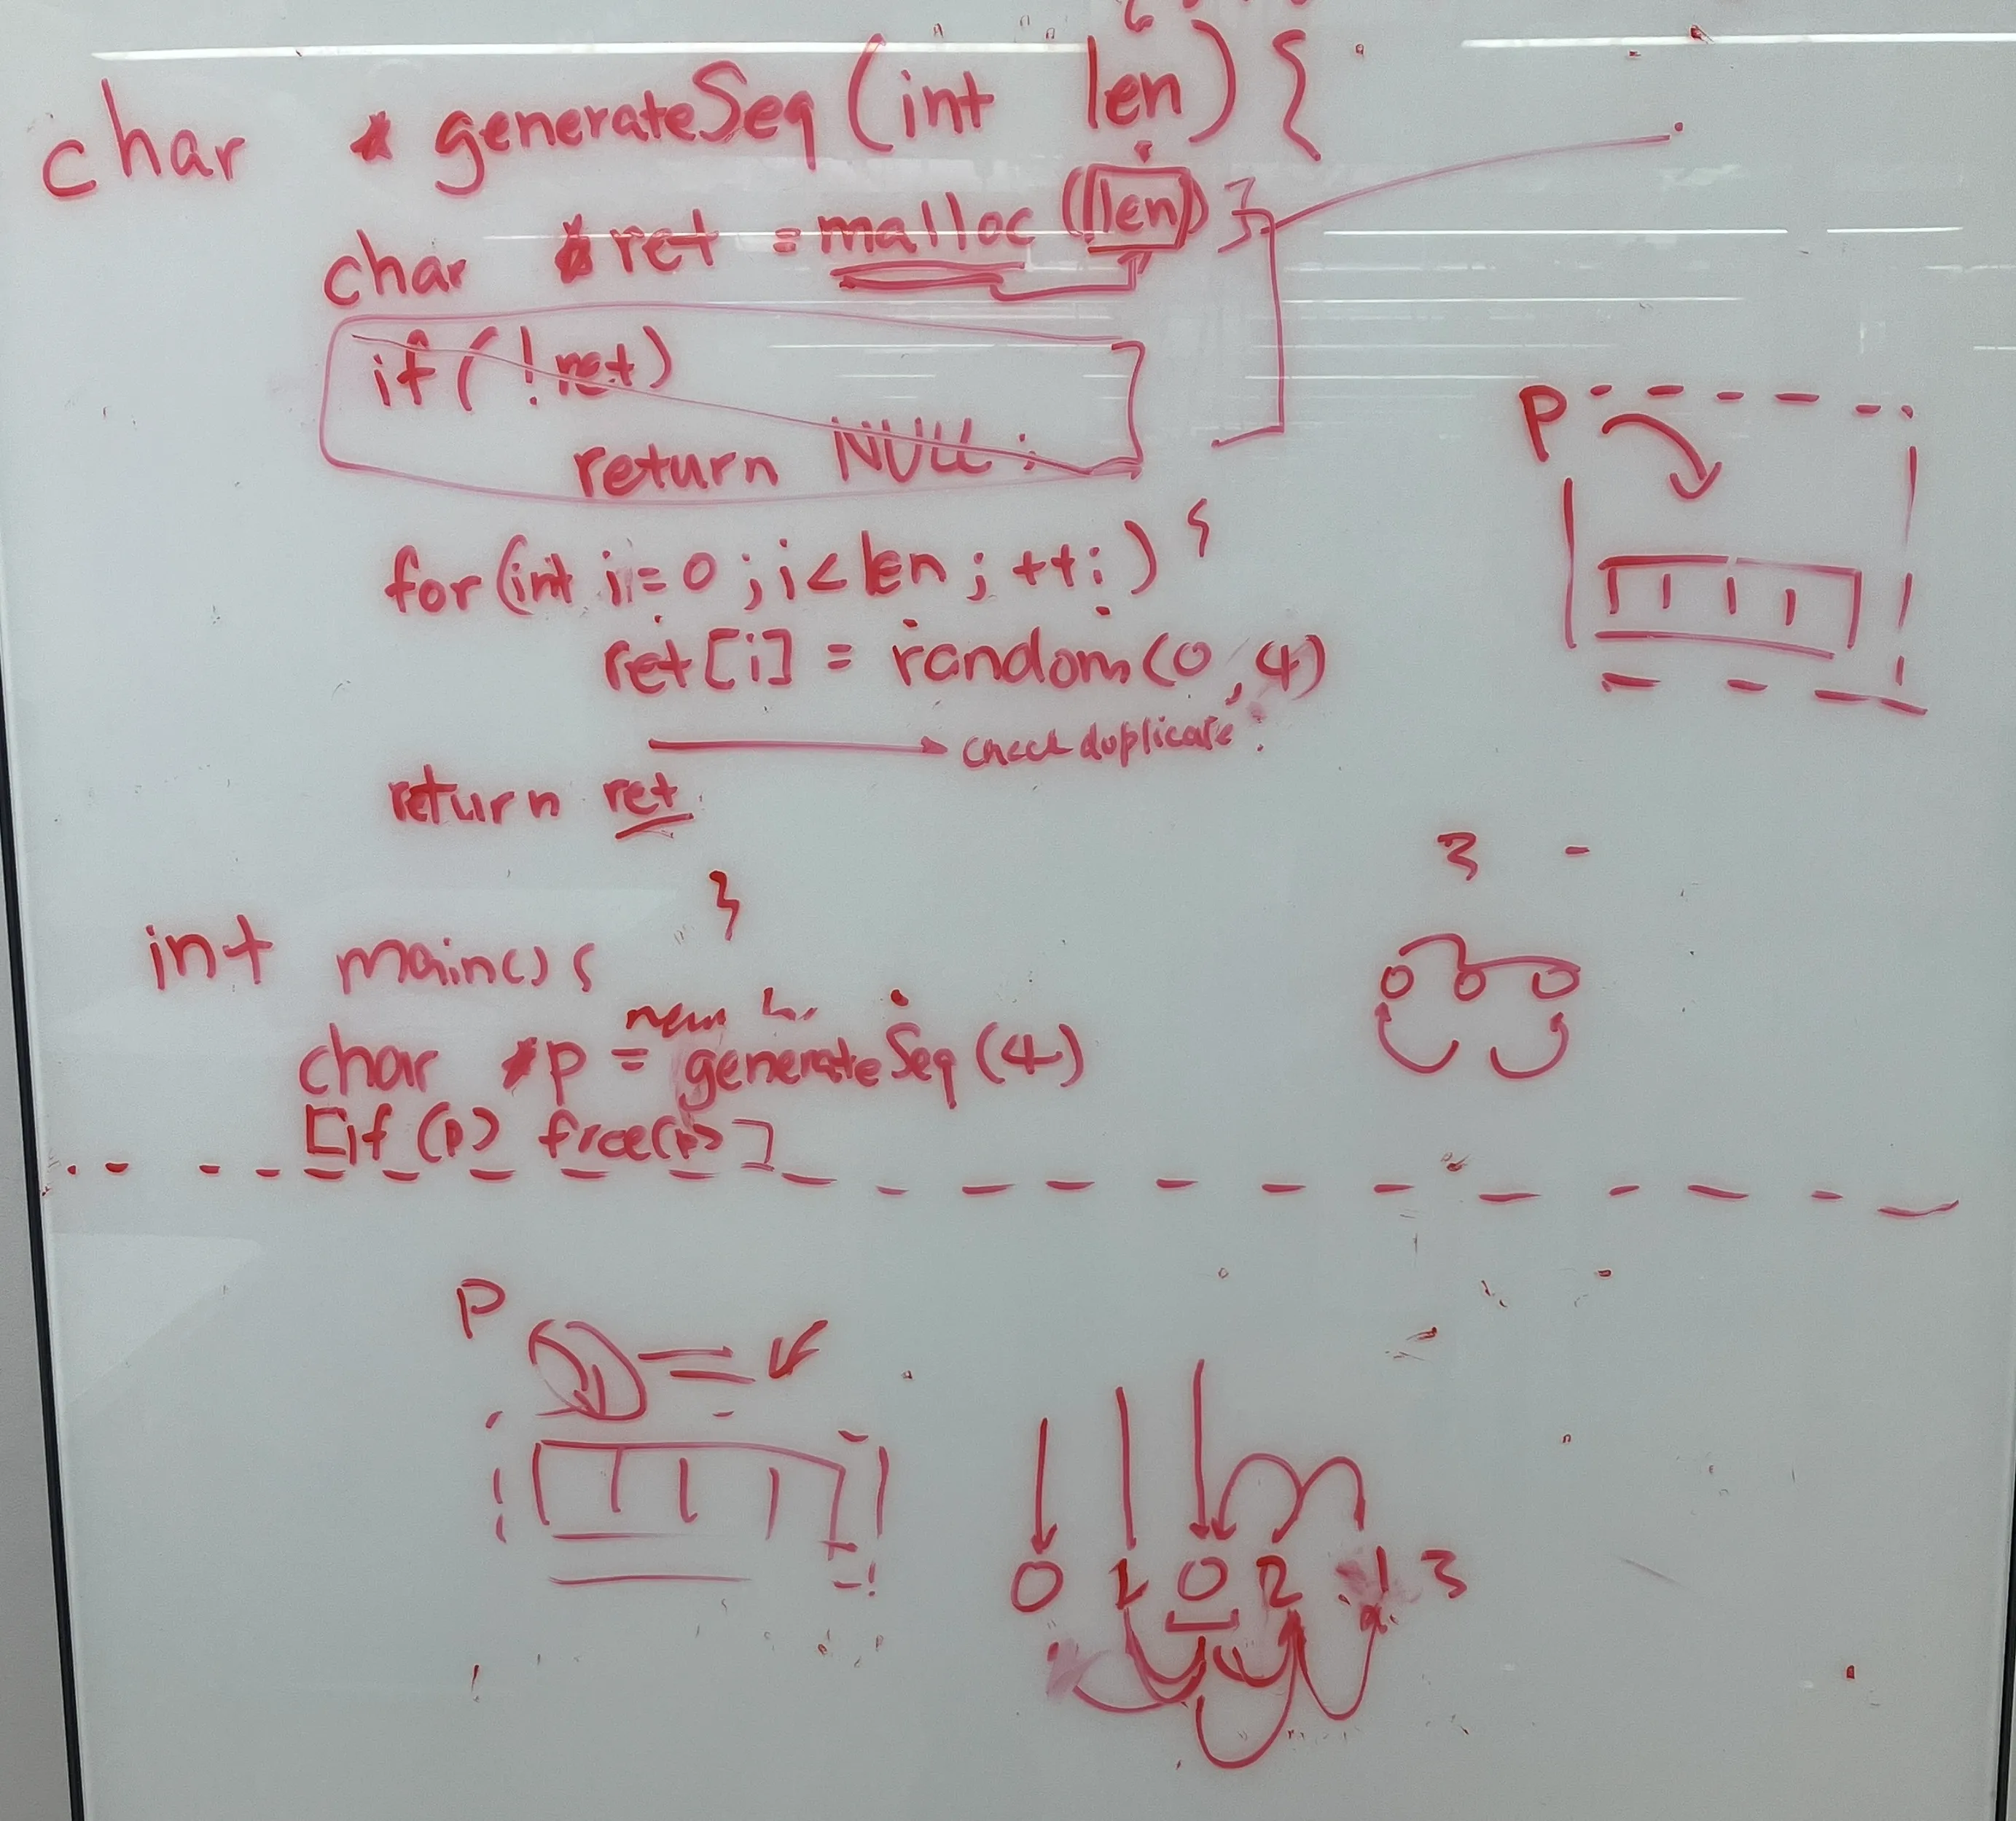 char *generateSeq(int len) {
char *ret = malloc (len)
if (!ret)
return NULL;
for(int i=0;i<len; ++i) {
ret[i] = random(0,4)
check duplicate
return ret
}
int main() {
new
char *p = generateSeq(4)
[if (p) free(p)]
P
3 -
0 0 0
P
0 1 0 2 1 3